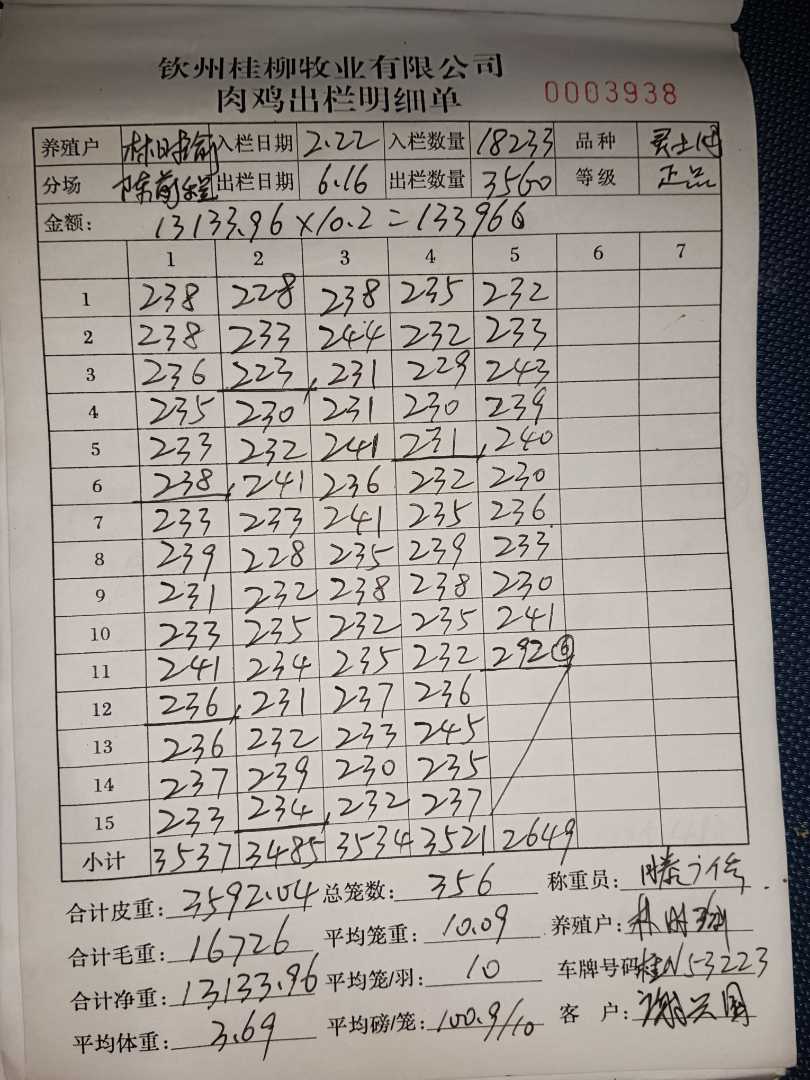 钦州桂柳牧业有限公司
肉鸡出栏明细单 0003938
养殖户 入栏日期 2.22 入栏数量 18233 品种
分场 出栏日期 6.16 出栏数量 3560 等级 正品
金额: 13133.96×10.2=133966
1 2 3 4 5 6 7
1 238 228 238 235 232
2 238 233 244 232 233
3 236 223, 231 229 243
4 235 230 231 230 239
5 233 232 241 231, 240
6 238, 241 236 232 230
7 233 233 241 235 236
8 239 228 235 239 233
9 231 232 238 238 230
10 233 235 232 235 241
11 241 234 235 232 292⑥
12 236, 231 237 236
13 236 232 233 245
14 237 239 230 235
15 233 234, 232 237
小计 3537 3485 3534 3521 2649
合计皮重: 3592.04 总笼数: 356 称重员:
合计毛重: 16726 平均笼重: 10.09 养殖户:
合计净重: 13133.96 平均笼/羽: 10 车牌号码 桂N53223
平均体重: 3.69 平均磅/笼: 100.9/10 客户: 谢兴国